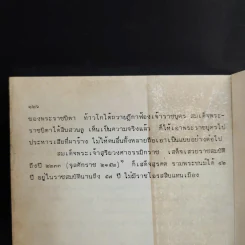 ๑๑๖
ของพระราชบิดา ท้าวโกไต้ถวายฎีกาฟ้องเจ้าราชบุตร สมเด็จพระ-
ราชบิดาได้สืบสวน เห็นเป็นความจริงแล้ว ก็ให้เอาพระราชบุตรไป
ประหารเสียที่ผาร้าง ไม่ให้คนอื่นทั้งหลายถือเอาเป็นแบบอย่างต่อไป
สมเด็จพระเจ้าสุริยวงศาธรรมิกราช เสด็จเสวยราชสมบัติ
ถึงปี ๒๒๓๓ (จุลศักราช ๑๐๕๒) ก็เสด็จสวรรคต รวมพระชนม์ได้
ปี อยู่ในราชสมบัตินานถึง ๕๗ ปี ไม่มีราชโอรสสืบแทนเมือง